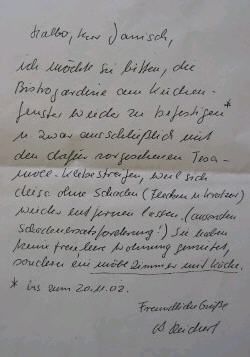 Hallo, Herr Janisch,
ich möchte sie bitten, die
Bistrogardine am Küchen-
fenster wieder zu befestigen*
u. zwar ausschließlich mit
den dafür vorgesehenen Tesa-
moll-Klebestreifen, weil sich
diese ohne Schaden (Flecken u. Kratzer)
wieder entfernen lassen. (ansonsten
Schadenersatzforderung!) Sie haben
keine freie leere Wohnung gemietet,
sondern ein möbl. Zimmer mit Küche.
* bis zum 20.11.02.
Freundliche Grüße